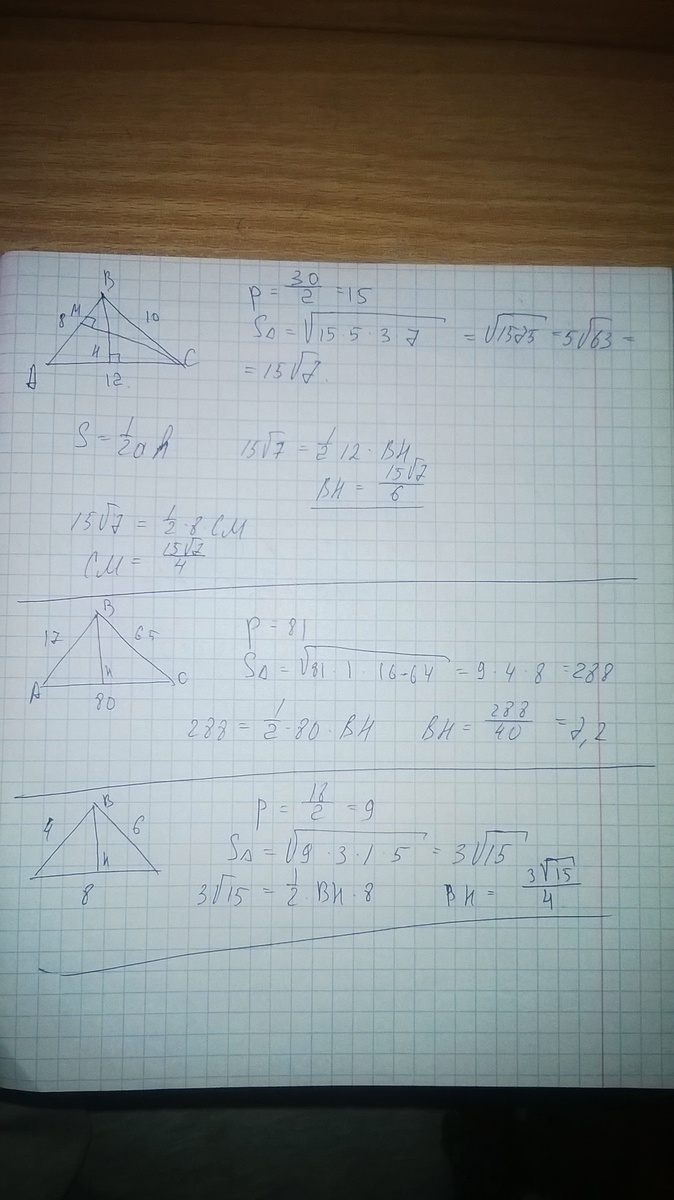 B
M
8
10
H
A
C
12
p = 30/2 = 15
S△ = √(15·5·3·7) = √1575 = 5√63 =
= 15√7.
S = 1/2 a h
15√7 = 1/2 12 · BH
BH = 15√7/6
15√7 = 1/2 · 8 CM
CM = 15√7/4
B
17
65
H
A
C
80
p = 81
S△ = √(81·1·16·64) = 9·4·8 = 288
288 = 1/2 · 80 · BH BH = 288/40 = 7,2
B
4
6
H
8
p = 18/2 = 9
S△ = √(9·3·1·5) = 3√15
3√15 = 1/2 · BH · 8 BH = 3√15/4